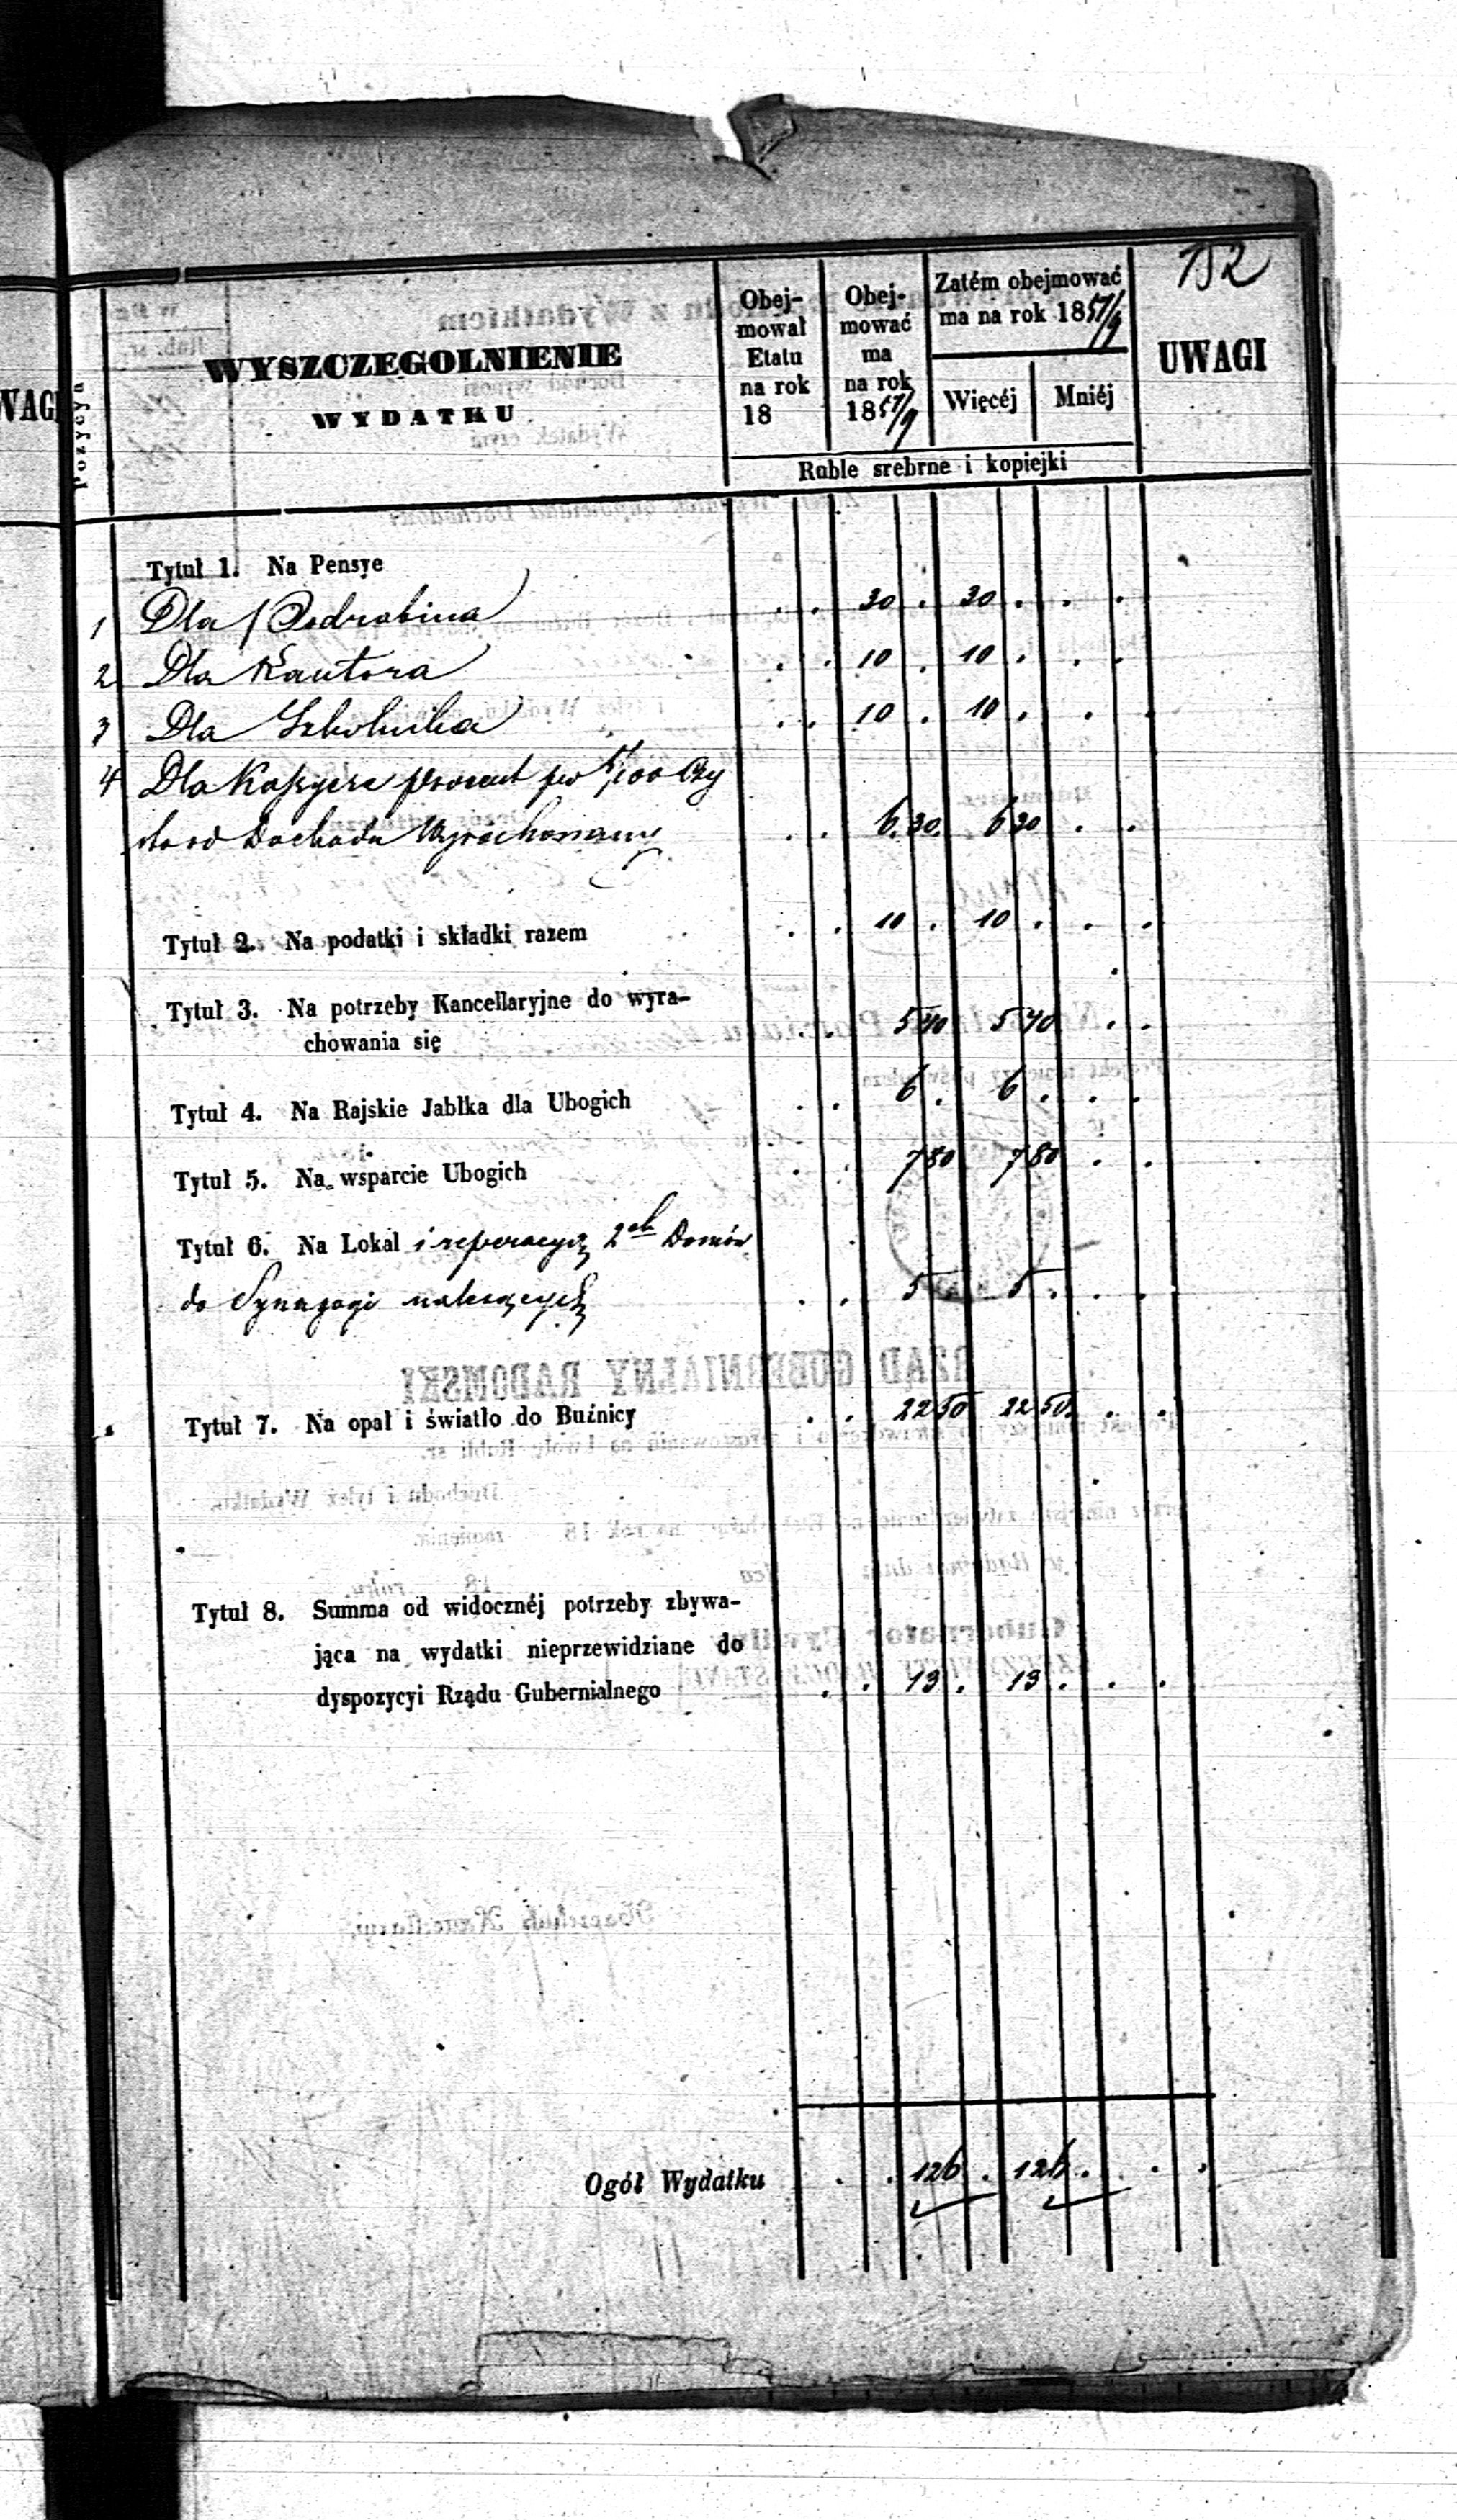 152
WAGI
Pozycya
WYSZCZEGOLNIENIE
WYDATKU
Obej-
mował
Etatu
na rok
18
Obej-
mować
ma
na rok
1857/9
Zatém obejmować
ma na rok 1857/9
Więcéj Mniéj
UWAGI
Ruble srebrne i kopiejki
Tytuł 1. Na Pensye
1 Dla Podrabina . . 30 . 30 . . .
2 Dla Kantora . . 10 . 10 . . .
3 Dla Szkolnika . . 10 . 10 . . .
4 Dla Kassyera procent po 5/100 Czy
sto od Dochodu Wyrachowany . . 6.30. 6 30 . .
Tytuł 2. Na podatki i składki razem . . 10 . 10 . . .
Tytuł 3. Na potrzeby Kancellaryjne do wyra-
chowania się . . 5 40 5 40 . .
Tytuł 4. Na Rajskie Jabłka dla Ubogich . . 6 . 6 . . .
Tytuł 5. Na wsparcie Ubogich . . 7 80 7 80 . .
Tytuł 6. Na Lokal i reperacyą 2ch Domów
do Synagogi należących . . 5 . 5 . . .
Tytuł 7. Na opał i światło do Buźnicy . . 22 50 22 50. . .
Tytuł 8. Summa od widocznéj potrzeby zbywa-
jąca na wydatki nieprzewidziane do
dyspozycyi Rządu Gubernialnego . . 13 . 13 . . .
Ogół Wydatku . . 126 . 126 . . .